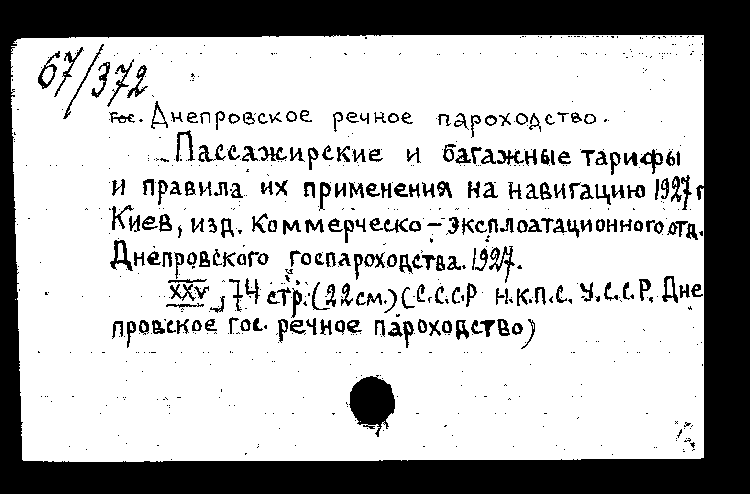 67/372
Гос. Днепровское речное пароходство.
Пассажирские и багажные тарифы
и правила их применения на навигацию 1927 г
Киев, изд. Коммерческо-эксплоатационного отд.
Днепровского госпароходства. 1927.
XXV, 74 стр. (22 см.) (С.С.С.Р Н.К.П.С. У.С.С.Р. Дне
провское гос. речное пароходство)